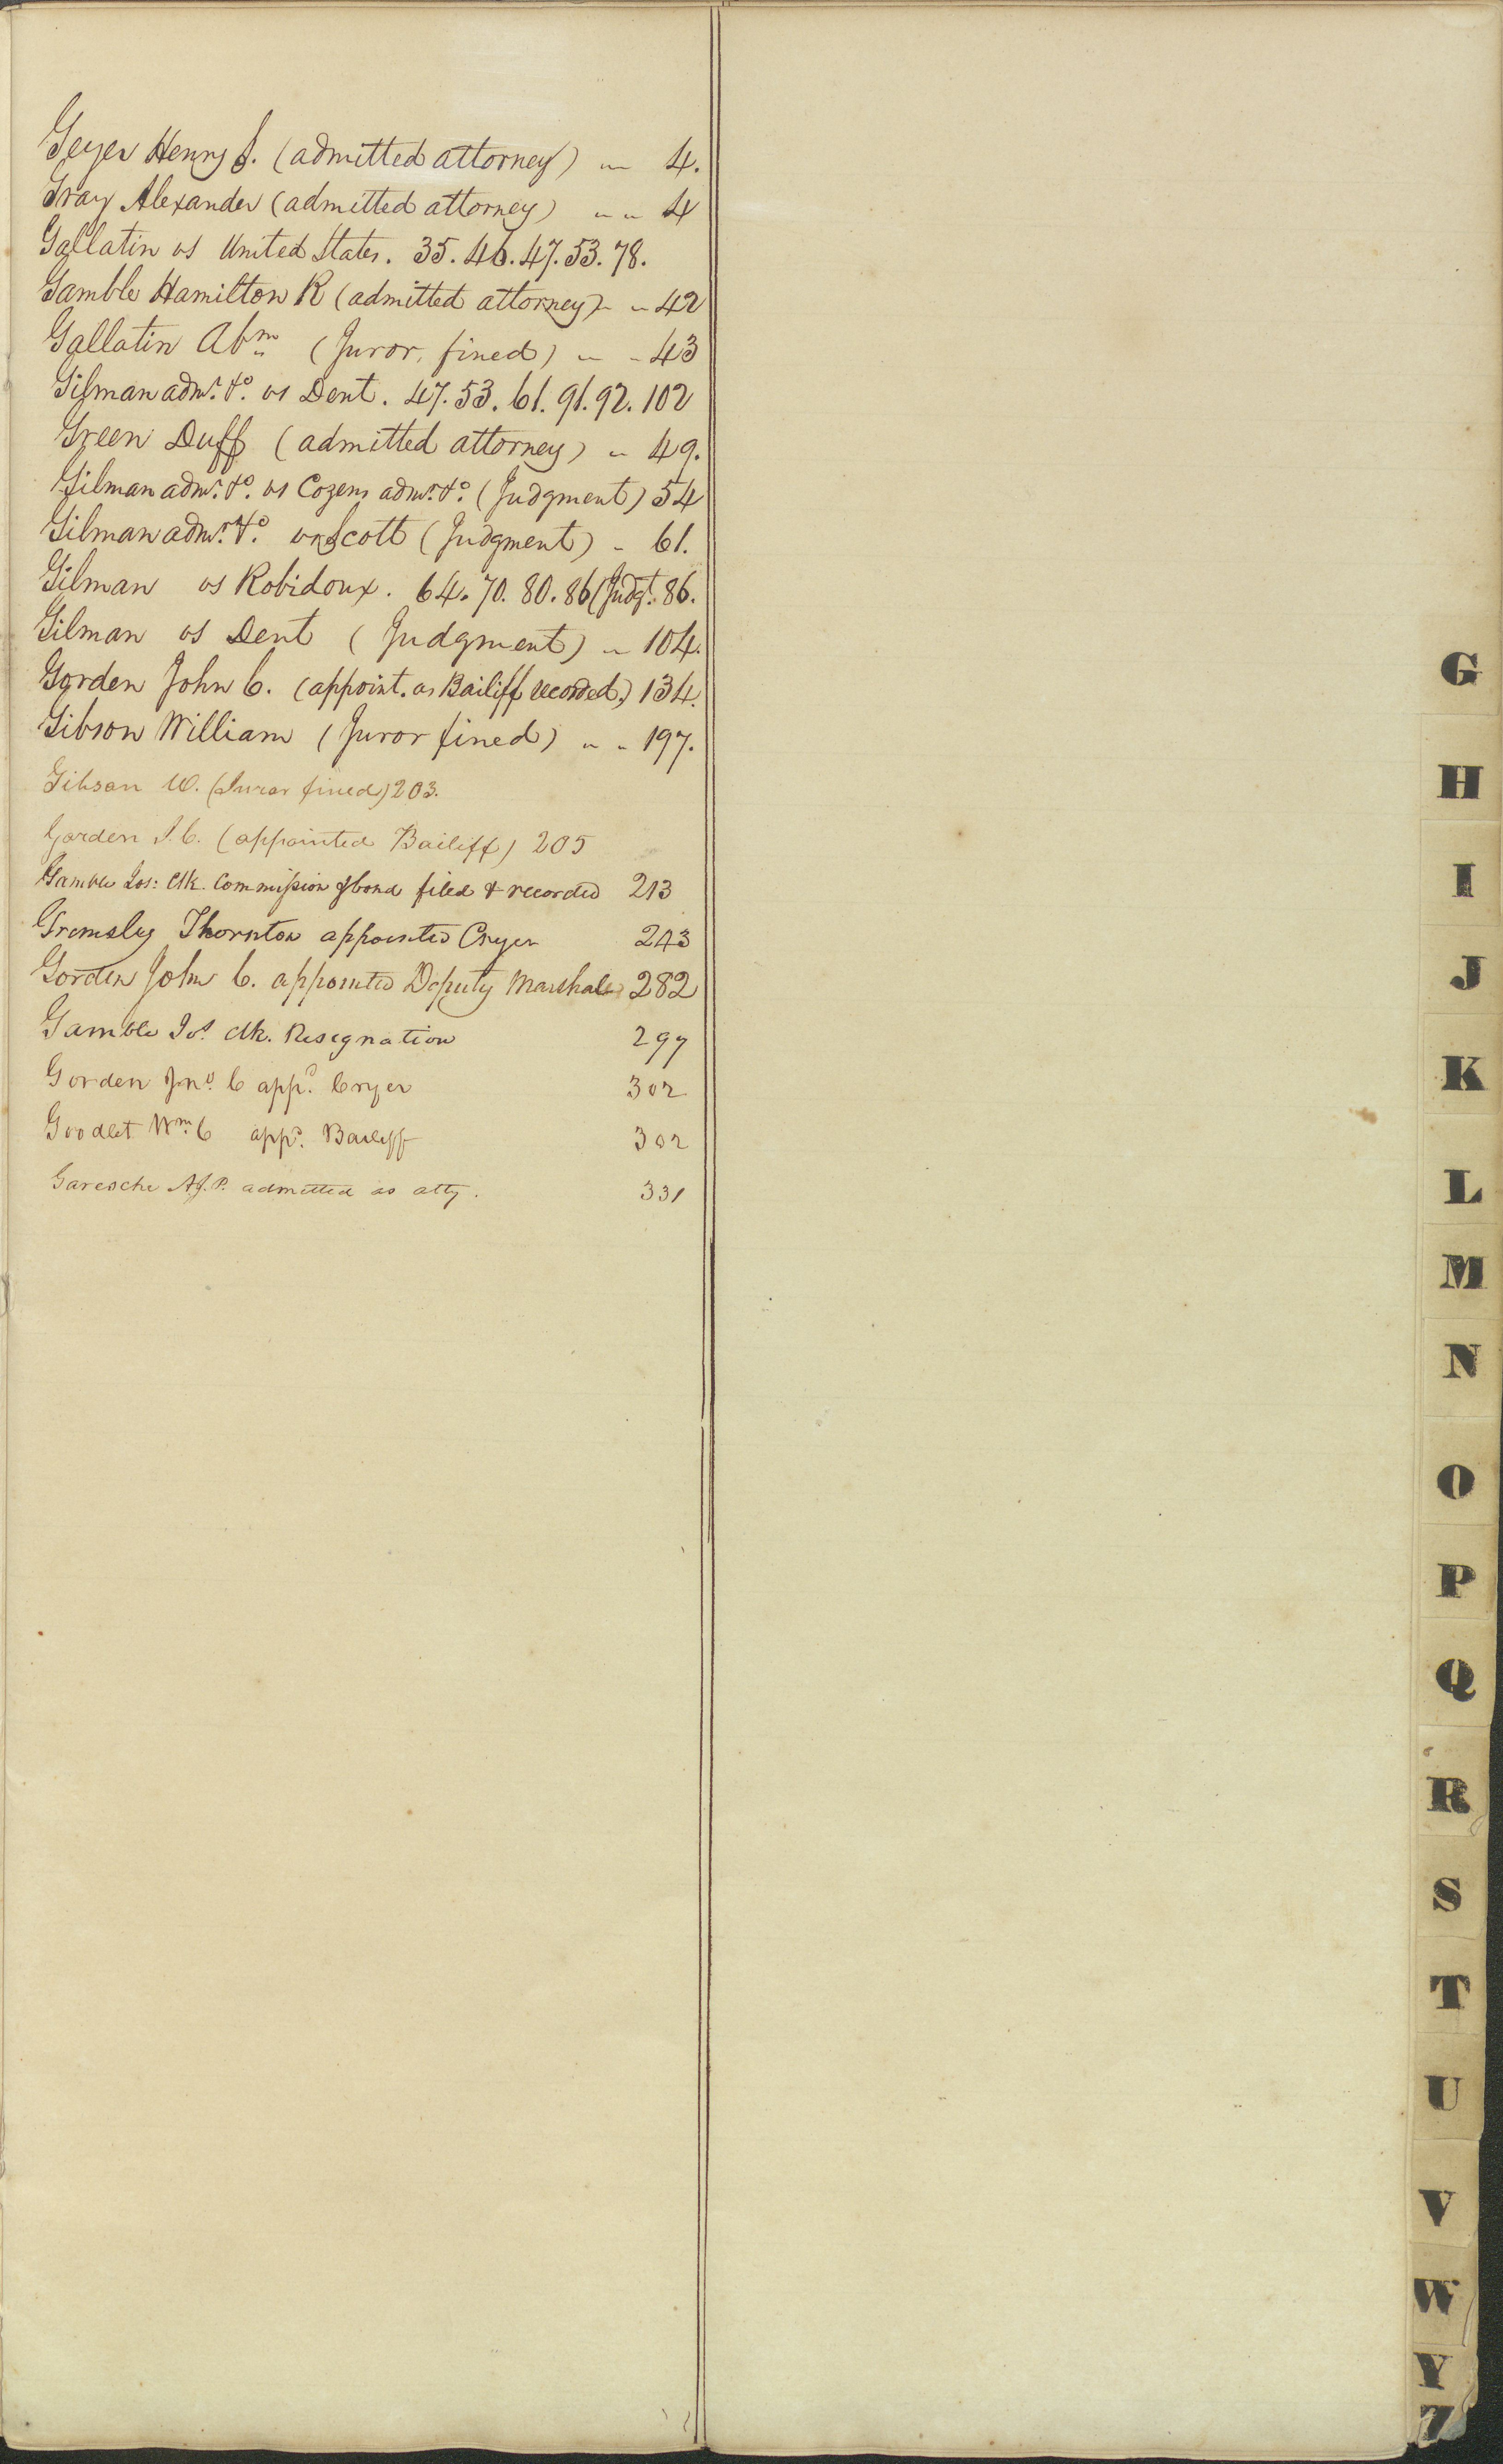 Geyer Henry S. (admitted attorney) " 4.
Gray Alexander (admitted attorney) " " 4
Gallatin vs United States. 35. 46. 47. 53. 78.
Gamble Hamilton R (admitted attorney) " 42
Gallatin Abm (Juror, fined) " " 43
Gilman admr. &c. vs Dent. 47. 53. 61. 91. 92. 102
Green Duff (admitted attorney) " 49.
Gilman admr. &c. vs Cozens admr. &c. (Judgment) 54
Gilman admr. &c. vs Scott (Judgment) " 61.
Gilman vs Robidoux. 64. 70. 80. 86 (Judgt. 86.
Gilman vs Dent (Judgment) " 104.
Gorden John C. (appoint. as Bailiff recorded.) 134.
Gibson William (Juror fined) " " 197.
Gibson W. (Juror fined) 203.
Gorden J. C. (appointed Bailiff) 205
Gamble Jos: Clk. Commission & bond filed & recorded 213
Gremsley Thornton appointed Cryer 243
Gorden John C. appointed Deputy Marshal 282
Gamble Jos. Clk. Resignation 297
Gorden Jno. C appd. Cryer 302
Goodlet Wm. C appd. Bailiff 302
Garesche A.J.P. admitted as atty. 331
G
H
I
J
K
L
M
N
O
P
Q
R
S
T
U
V
W
Y
Z